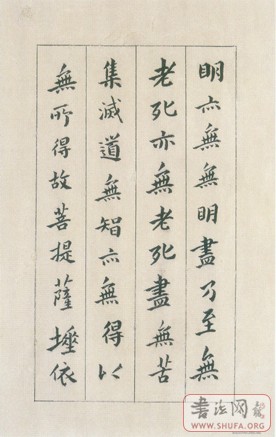 明亦無無明盡乃至無
老死亦無老死盡無苦
集滅道無智亦無得以
無所得故菩提薩埵依
書法网
WWW.SHUFA.ORG